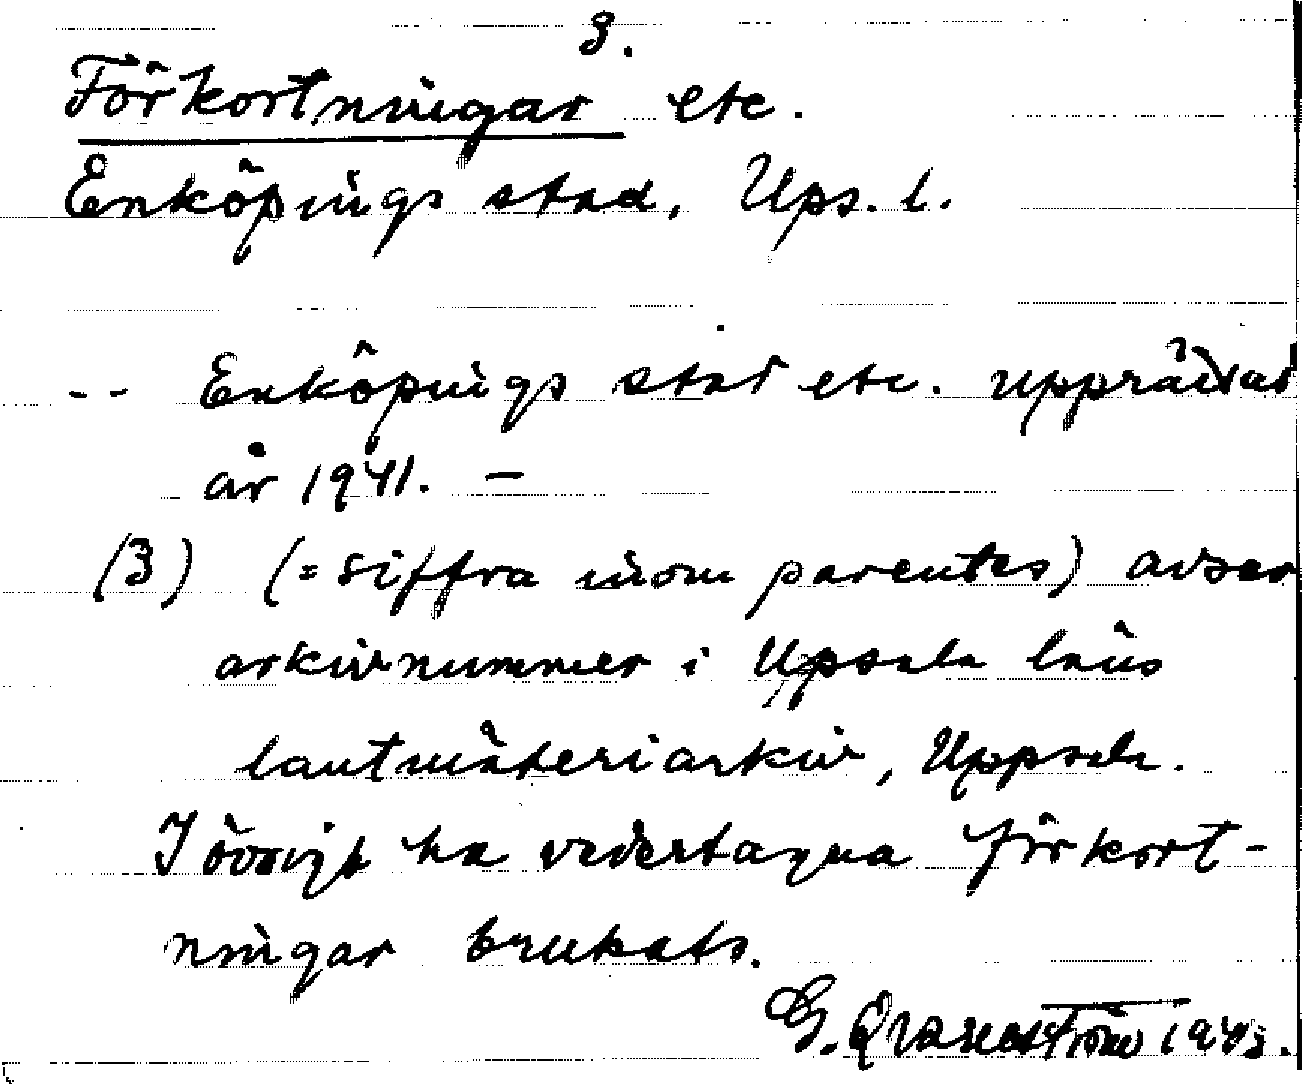 3.
Förkortningar etc.
Enköpings stad, Ups. l.
-- Enköpings stad etc. upprättad
år 1941. –
(3) (= siffra inom parentes) avser
arkivnummer i Upsala läns
lantmäteriarkiv, Uppsala.
I övrigt ha vedertagna förkort-
ningar brukats.
G. 1943.